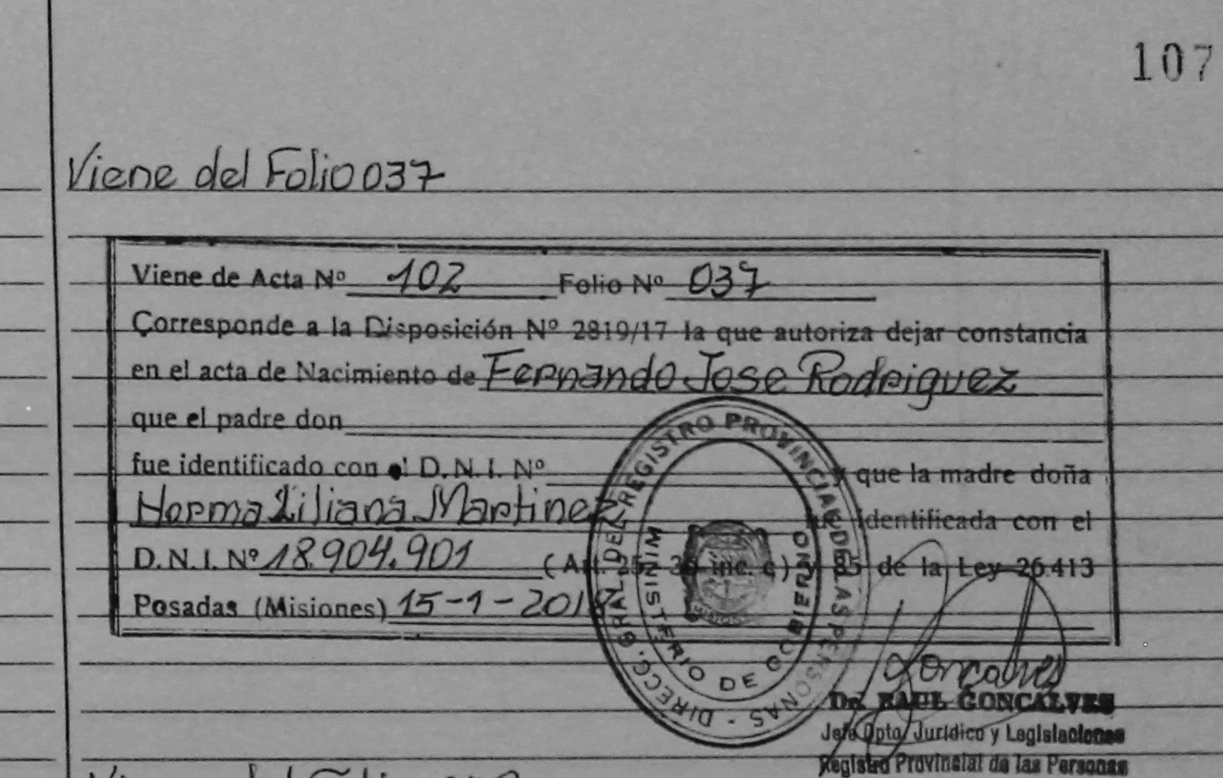 107
Viene del Folio 037
Viene de Acta Nº 102 Folio Nº 037
Corresponde a la Disposición Nº 2819/17 la que autoriza dejar constancia
en el acta de Nacimiento de Fernando Jose Rodriguez
que el padre don
fue identificado con el D.N.I. Nº y que la madre doña
Norma Liliana Martinez fue identificada con el
D.N.I. Nº 18.904.901 (Art. inc. c) y 85 de la Ley 26.413
Posadas (Misiones) 15-1-2018
DIRECC. GRAL. DEL REGISTRO PROVINCIAL DE LAS PERSONAS -
MINISTERIO DE GOBIERNO
Goncalves
Dr. RAUL GONCALVES
Jefe Dpto. Jurídico y Legislaciones
Registro Provincial de las Personas
Viene del Folio